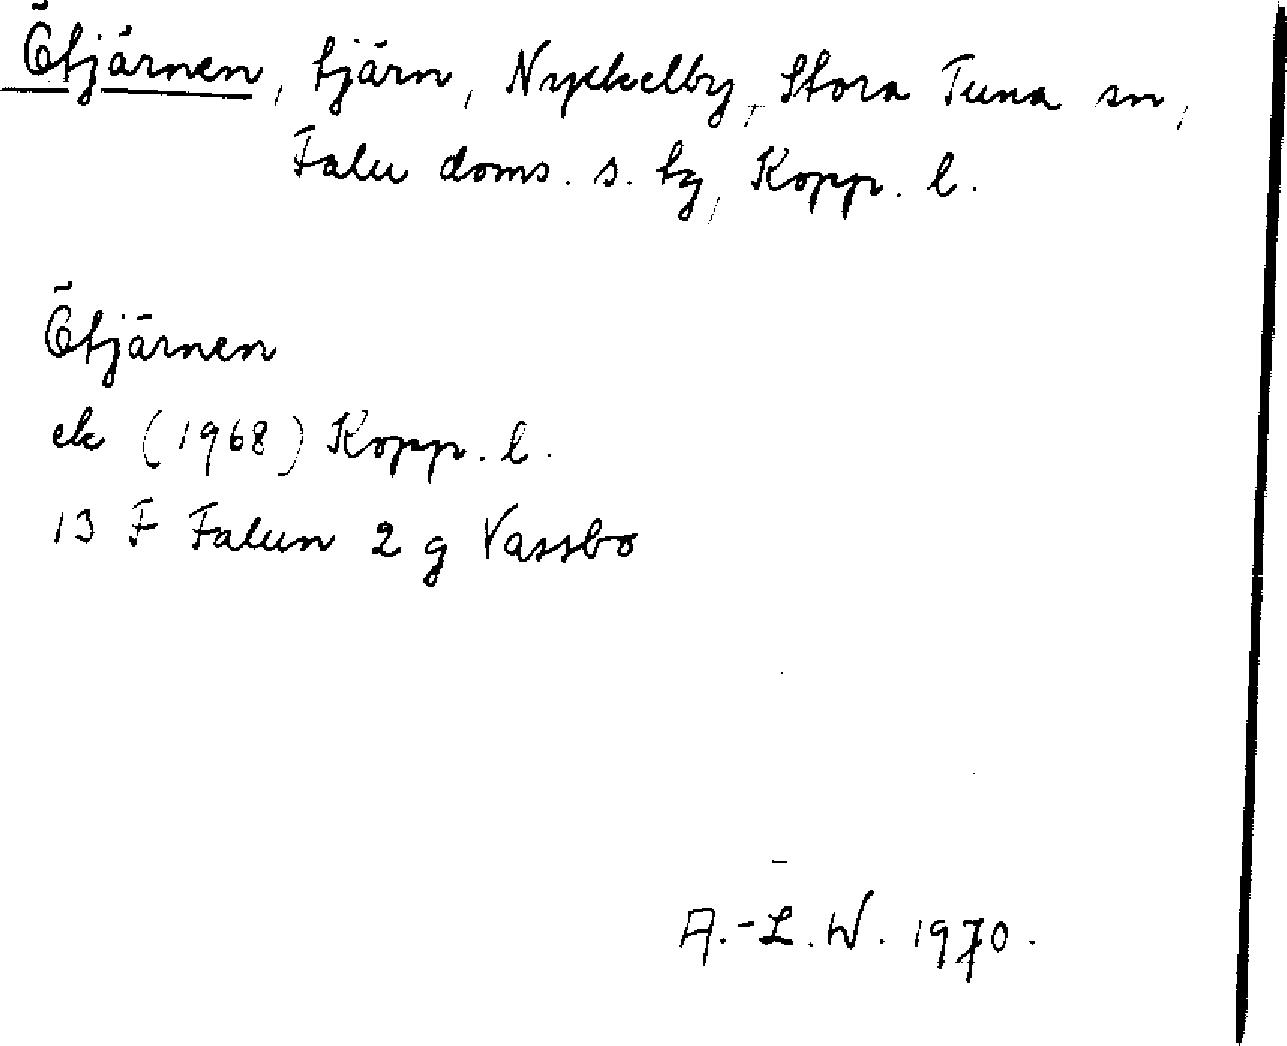 Ötjärnen, tjärn, Nyckelby, Stora Tuna sn,
Falu doms. s. tg, Kopp. l.
Ötjärnen
ek (1968) Kopp. l.
13 F Falun 2 g Vassbo
A.-L. W. 1970.